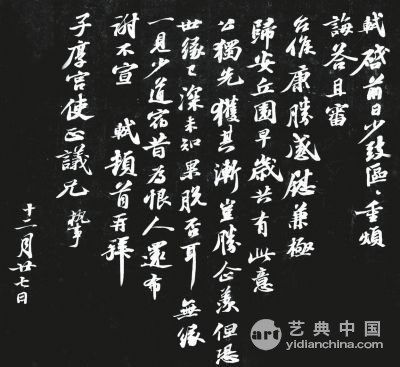 軾啓前日少致區〻重煩
誨答且審
台候康勝感慰兼極
歸安丘園早歲共有此意
公獨先獲其漸豈勝企羨但恐
世緣已深未知果脫否耳 無緣
一見少道宿昔為恨人還布
謝不宣 軾頓首再拜
子厚宮使正議兄 執事
十二月廿七日
art 艺典中国
yidianchina.com